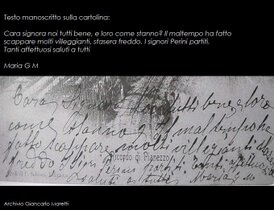 Testo manoscritto sulla cartolina:
Cara signora noi tutti bene, e loro come stanno? Il maltempo ha fatto
scappare molti villeggianti, stasera freddo. I signori Perini partiti.
Tanti affettuosi saluti a tutti
Maria G M
Cara Signora noi tutti bene e loro
come stanno? Il maltempo ha
fatto scappare molti villeggianti stasera
freddo I Sigri Perini partiti. Tanti affettuosi
saluti a tutti Maria G M
Ricordo di Pianezzo
Archivio Giancarlo Maretti